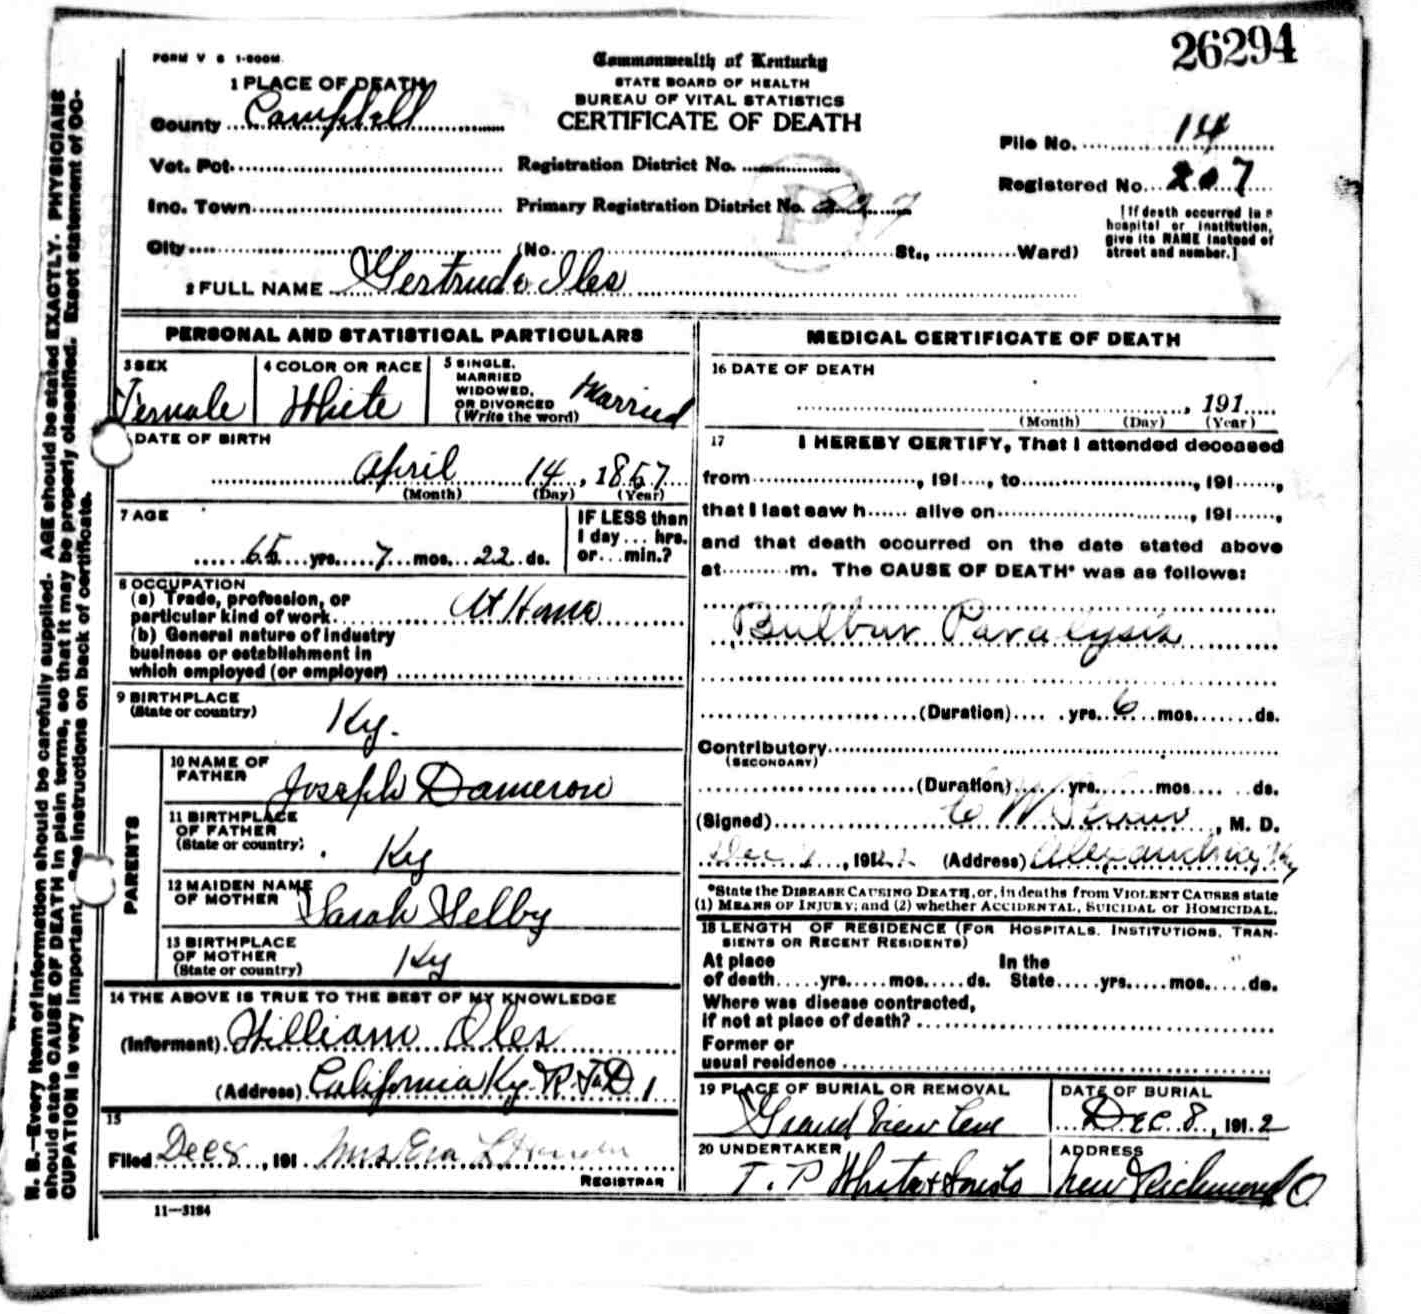 26294
FORM V S 1-600M.
Commonwealth of Kentucky
STATE BOARD OF HEALTH
BUREAU OF VITAL STATISTICS
CERTIFICATE OF DEATH
1 PLACE OF DEATH
County Campbell
Vot. Pot.
Inc. Town
City
Registration District No.
Primary Registration District No.
(No. St., Ward)
File No. 14
Registered No. 207
[If death occurred in a
hospital or institution,
give its NAME instead of
street and number.]
2 FULL NAME Gertrude Iles
PERSONAL AND STATISTICAL PARTICULARS
3 SEX
Female
4 COLOR OR RACE
White
5 SINGLE,
MARRIED
WIDOWED,
OR DIVORCED
(Write the word)
Married
DATE OF BIRTH
April 14, 1857
(Month) (Day) (Year)
7 AGE
65 yrs. 7 mos. 22 ds.
IF LESS than
1 day ... hrs.
or ... min.?
8 OCCUPATION
(a) Trade, profession, or
particular kind of work At Home
(b) General nature of industry
business or establishment in
which employed (or employer)
9 BIRTHPLACE
(State or country)
Ky.
PARENTS
10 NAME OF
FATHER
Joseph Dameron
11 BIRTHPLACE
OF FATHER
(State or country)
Ky
12 MAIDEN NAME
OF MOTHER
Sarah Selby
13 BIRTHPLACE
OF MOTHER
(State or country)
Ky
14 THE ABOVE IS TRUE TO THE BEST OF MY KNOWLEDGE
(Informant) William Iles
(Address) California Ky. R.F.D 1
15
Filed Dec 8, 191 Mrs Eva L
REGISTRAR
11-3184
MEDICAL CERTIFICATE OF DEATH
16 DATE OF DEATH
, 191
(Month) (Day) (Year)
17 I HEREBY CERTIFY, That I attended deceased
from , 191 , to , 191 ,
that I last saw h alive on , 191 ,
and that death occurred on the date stated above
at m. The CAUSE OF DEATH* was as follows:
Bulbur Paralysis
(Duration) yrs. 6 mos. ds.
Contributory
(SECONDARY)
(Duration) yrs. mos. ds.
(Signed) C W , M. D.
Dec , 19 (Address) Alexandria, Ky
*State the DISEASE CAUSING DEATH, or, in deaths from VIOLENT CAUSES state
(1) MEANS OF INJURY; and (2) whether ACCIDENTAL, SUICIDAL or HOMICIDAL.
18 LENGTH OF RESIDENCE (FOR HOSPITALS, INSTITUTIONS, TRAN-
SIENTS OR RECENT RESIDENTS)
At place In the
of death yrs. mos. ds. State yrs. mos. ds.
Where was disease contracted,
if not at place of death?
Former or
usual residence
19 PLACE OF BURIAL OR REMOVAL
Grand View Cem
DATE OF BURIAL
Dec 8, 1912
20 UNDERTAKER
T. P White & Sons
ADDRESS
New Richmond O
N. B.—Every item of information should be carefully supplied. AGE should be stated EXACTLY. PHYSICIANS
should state CAUSE OF DEATH in plain terms, so that it may be properly classified. Exact statement of OC-
CUPATION is very important. See instructions on back of certificate.